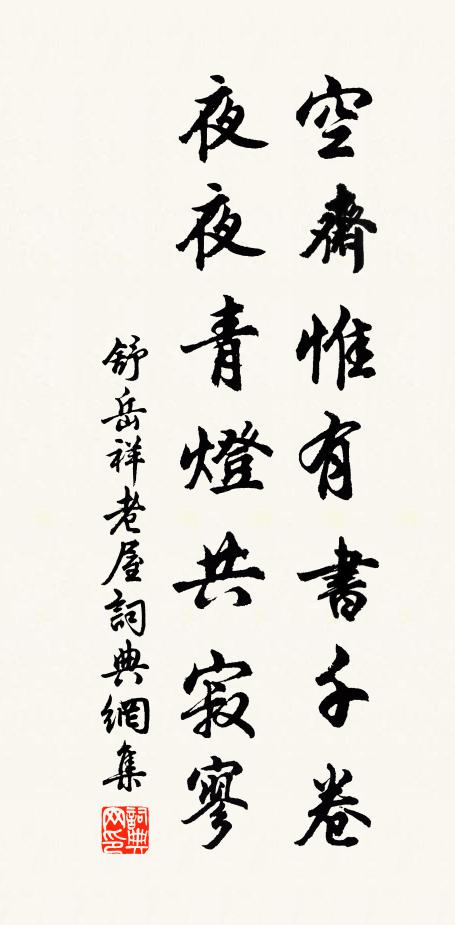 空齋惟有書千卷
夜夜青燈共寂寥
舒岳祥老屋詞典網集
詞典網印